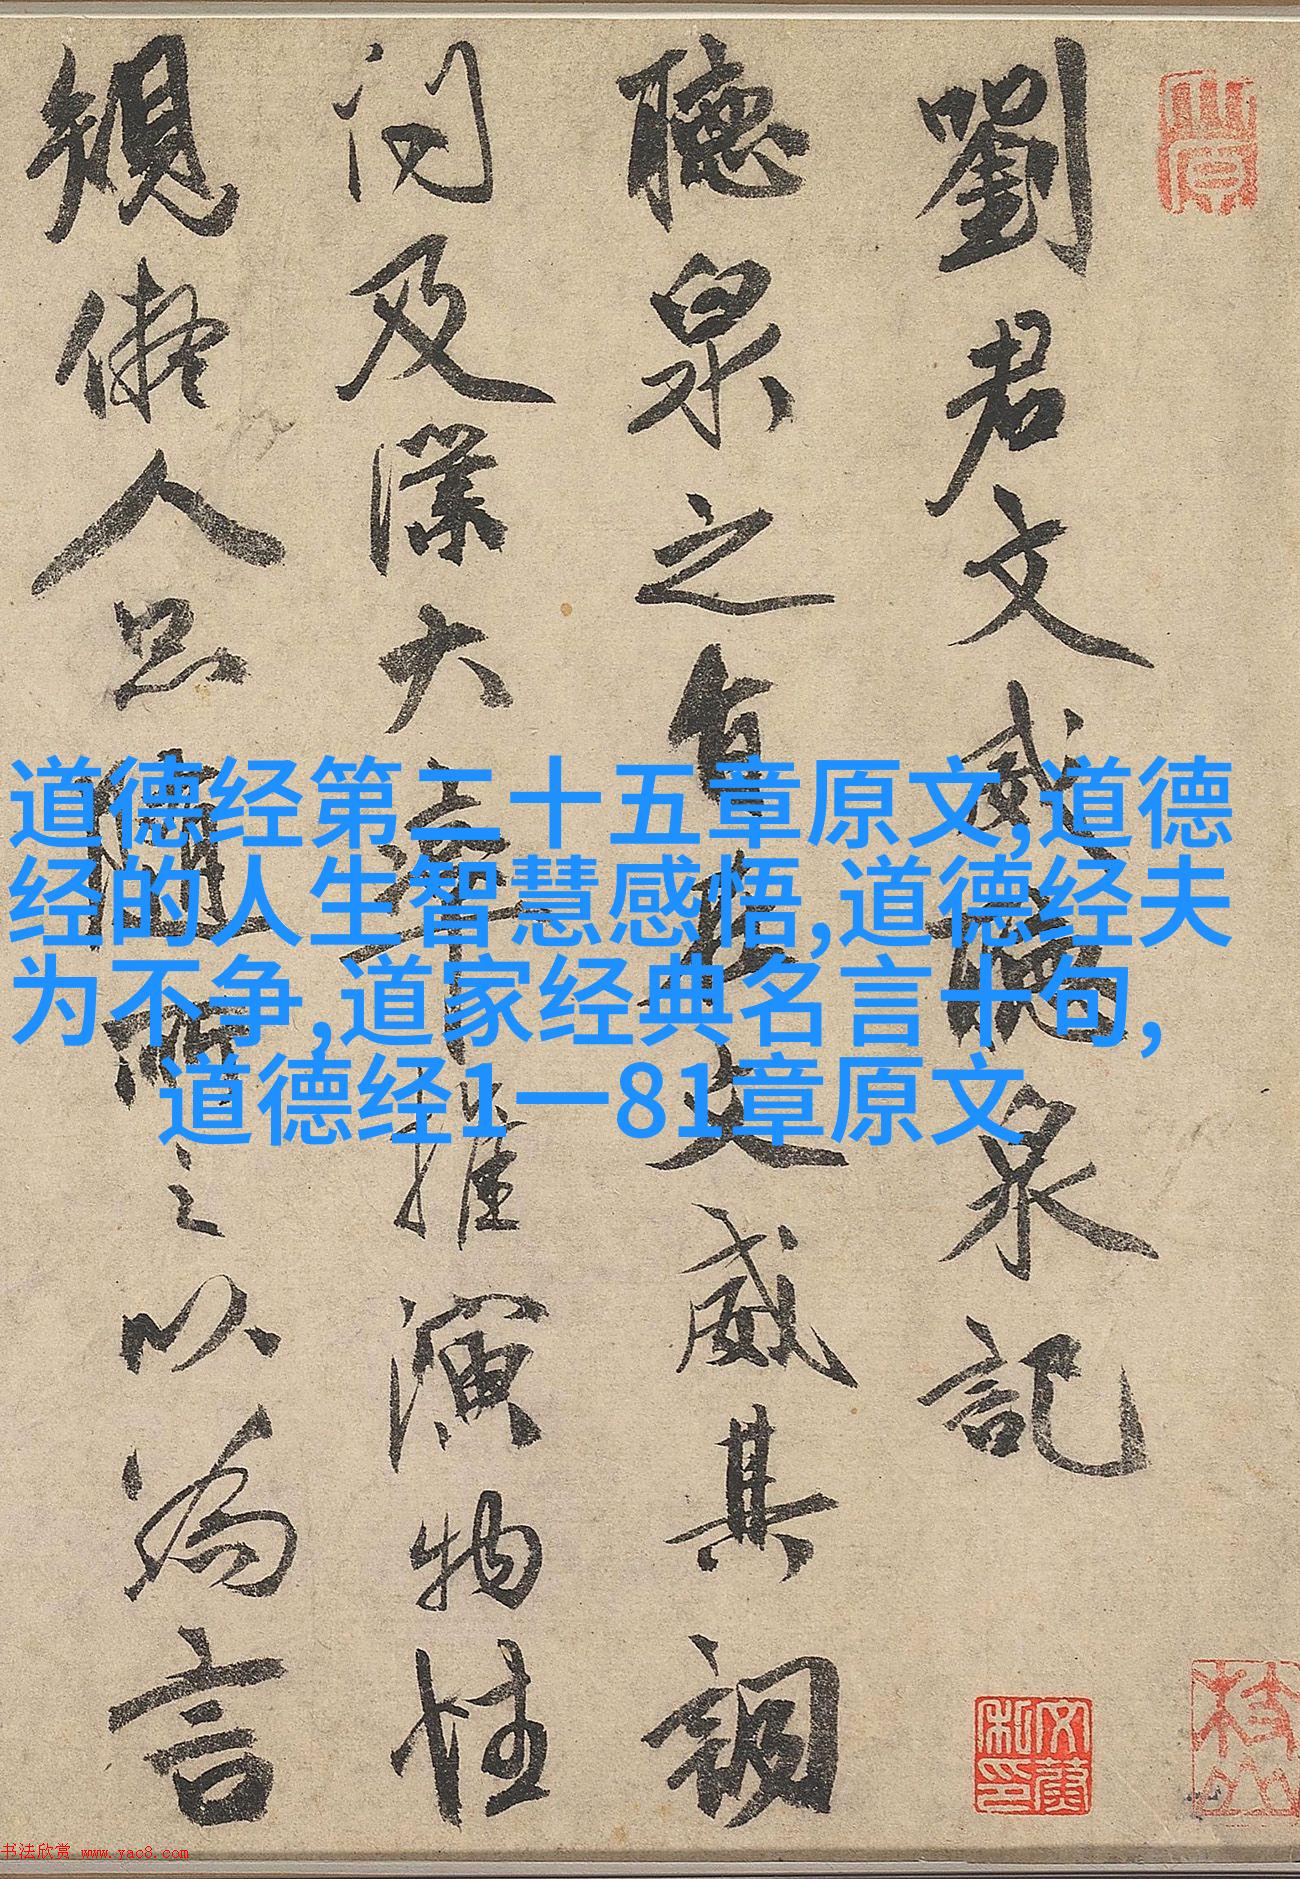 劉君文威聽泉記
聽泉之文威其
及大推演物性
人品之以為言
道德经第二十五章原文,道德
经的人生智慧感悟,道德经夫
为不争,道家经典名言十句,
道德经1一81章原文
书法欣赏 www.yac8.com